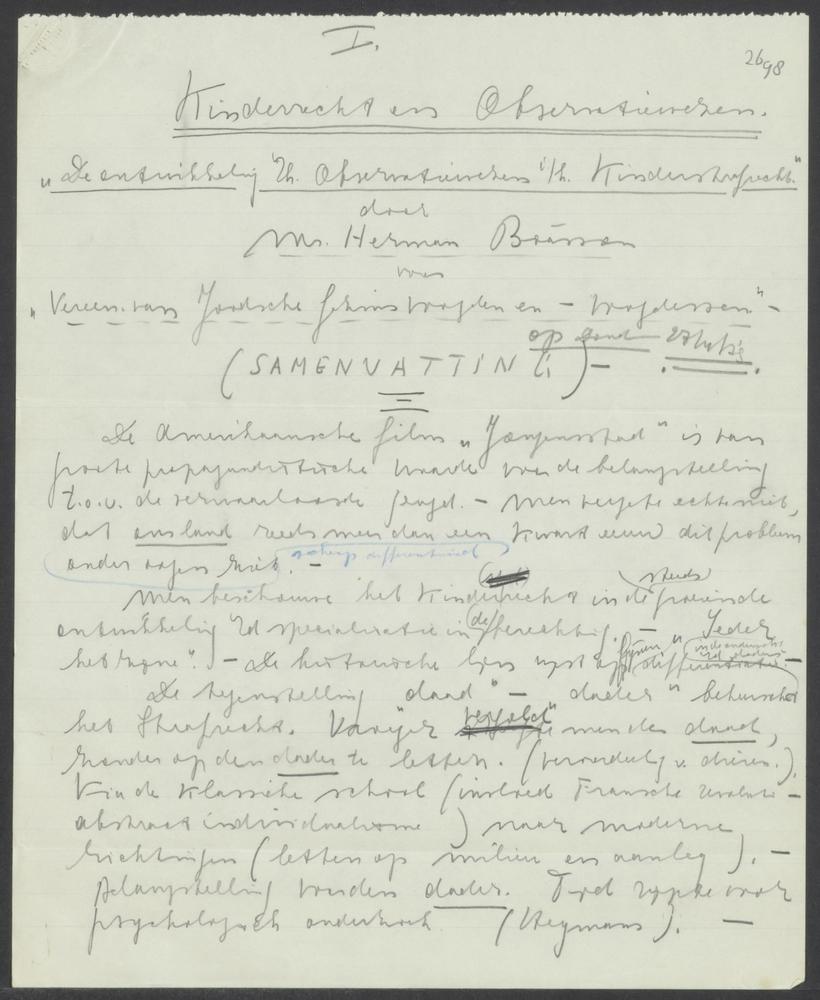 I.
2698
Kinderrecht en Observatiewezen.
"De ontwikkeling v/h. Observatiewezen i/h. Kinderstrafrecht."
door
Mr. Herman
voor
"Vereen. van Joodsche gehims voogden en - voogdessen" -
op
(SAMENVATTING) -
De Amerikaansche film "Jongensstad" is van
groote propagandistische waarde voor de belangstelling
t.o.v. de verwaarloosde jeugd. - Men vergete echter niet,
dat ons land reeds meer dan een kwart eeuw dit probleem
onder oogen ziet. -
scherp differentieel
Men beschouwe het Kinderrecht in de steeds groeiende
ontwikkeling specialisatie in de berechting. - "Ieder
het zijne". - De historische lijn wijst op
De tegenstelling "daad" - "dader" beheerscht
het Strafrecht. Vroeger men de daad,
zonder op den dader te letten. (veroordeeling v. dieren.)
Via de klassieke school (invloed Fransche revolutie -
abstract individualisme) naar moderne
richtingen (letten op milieu en aanleg). -
Belangstelling voor den dader. voor
psychologisch onderzoek (Heymans). -